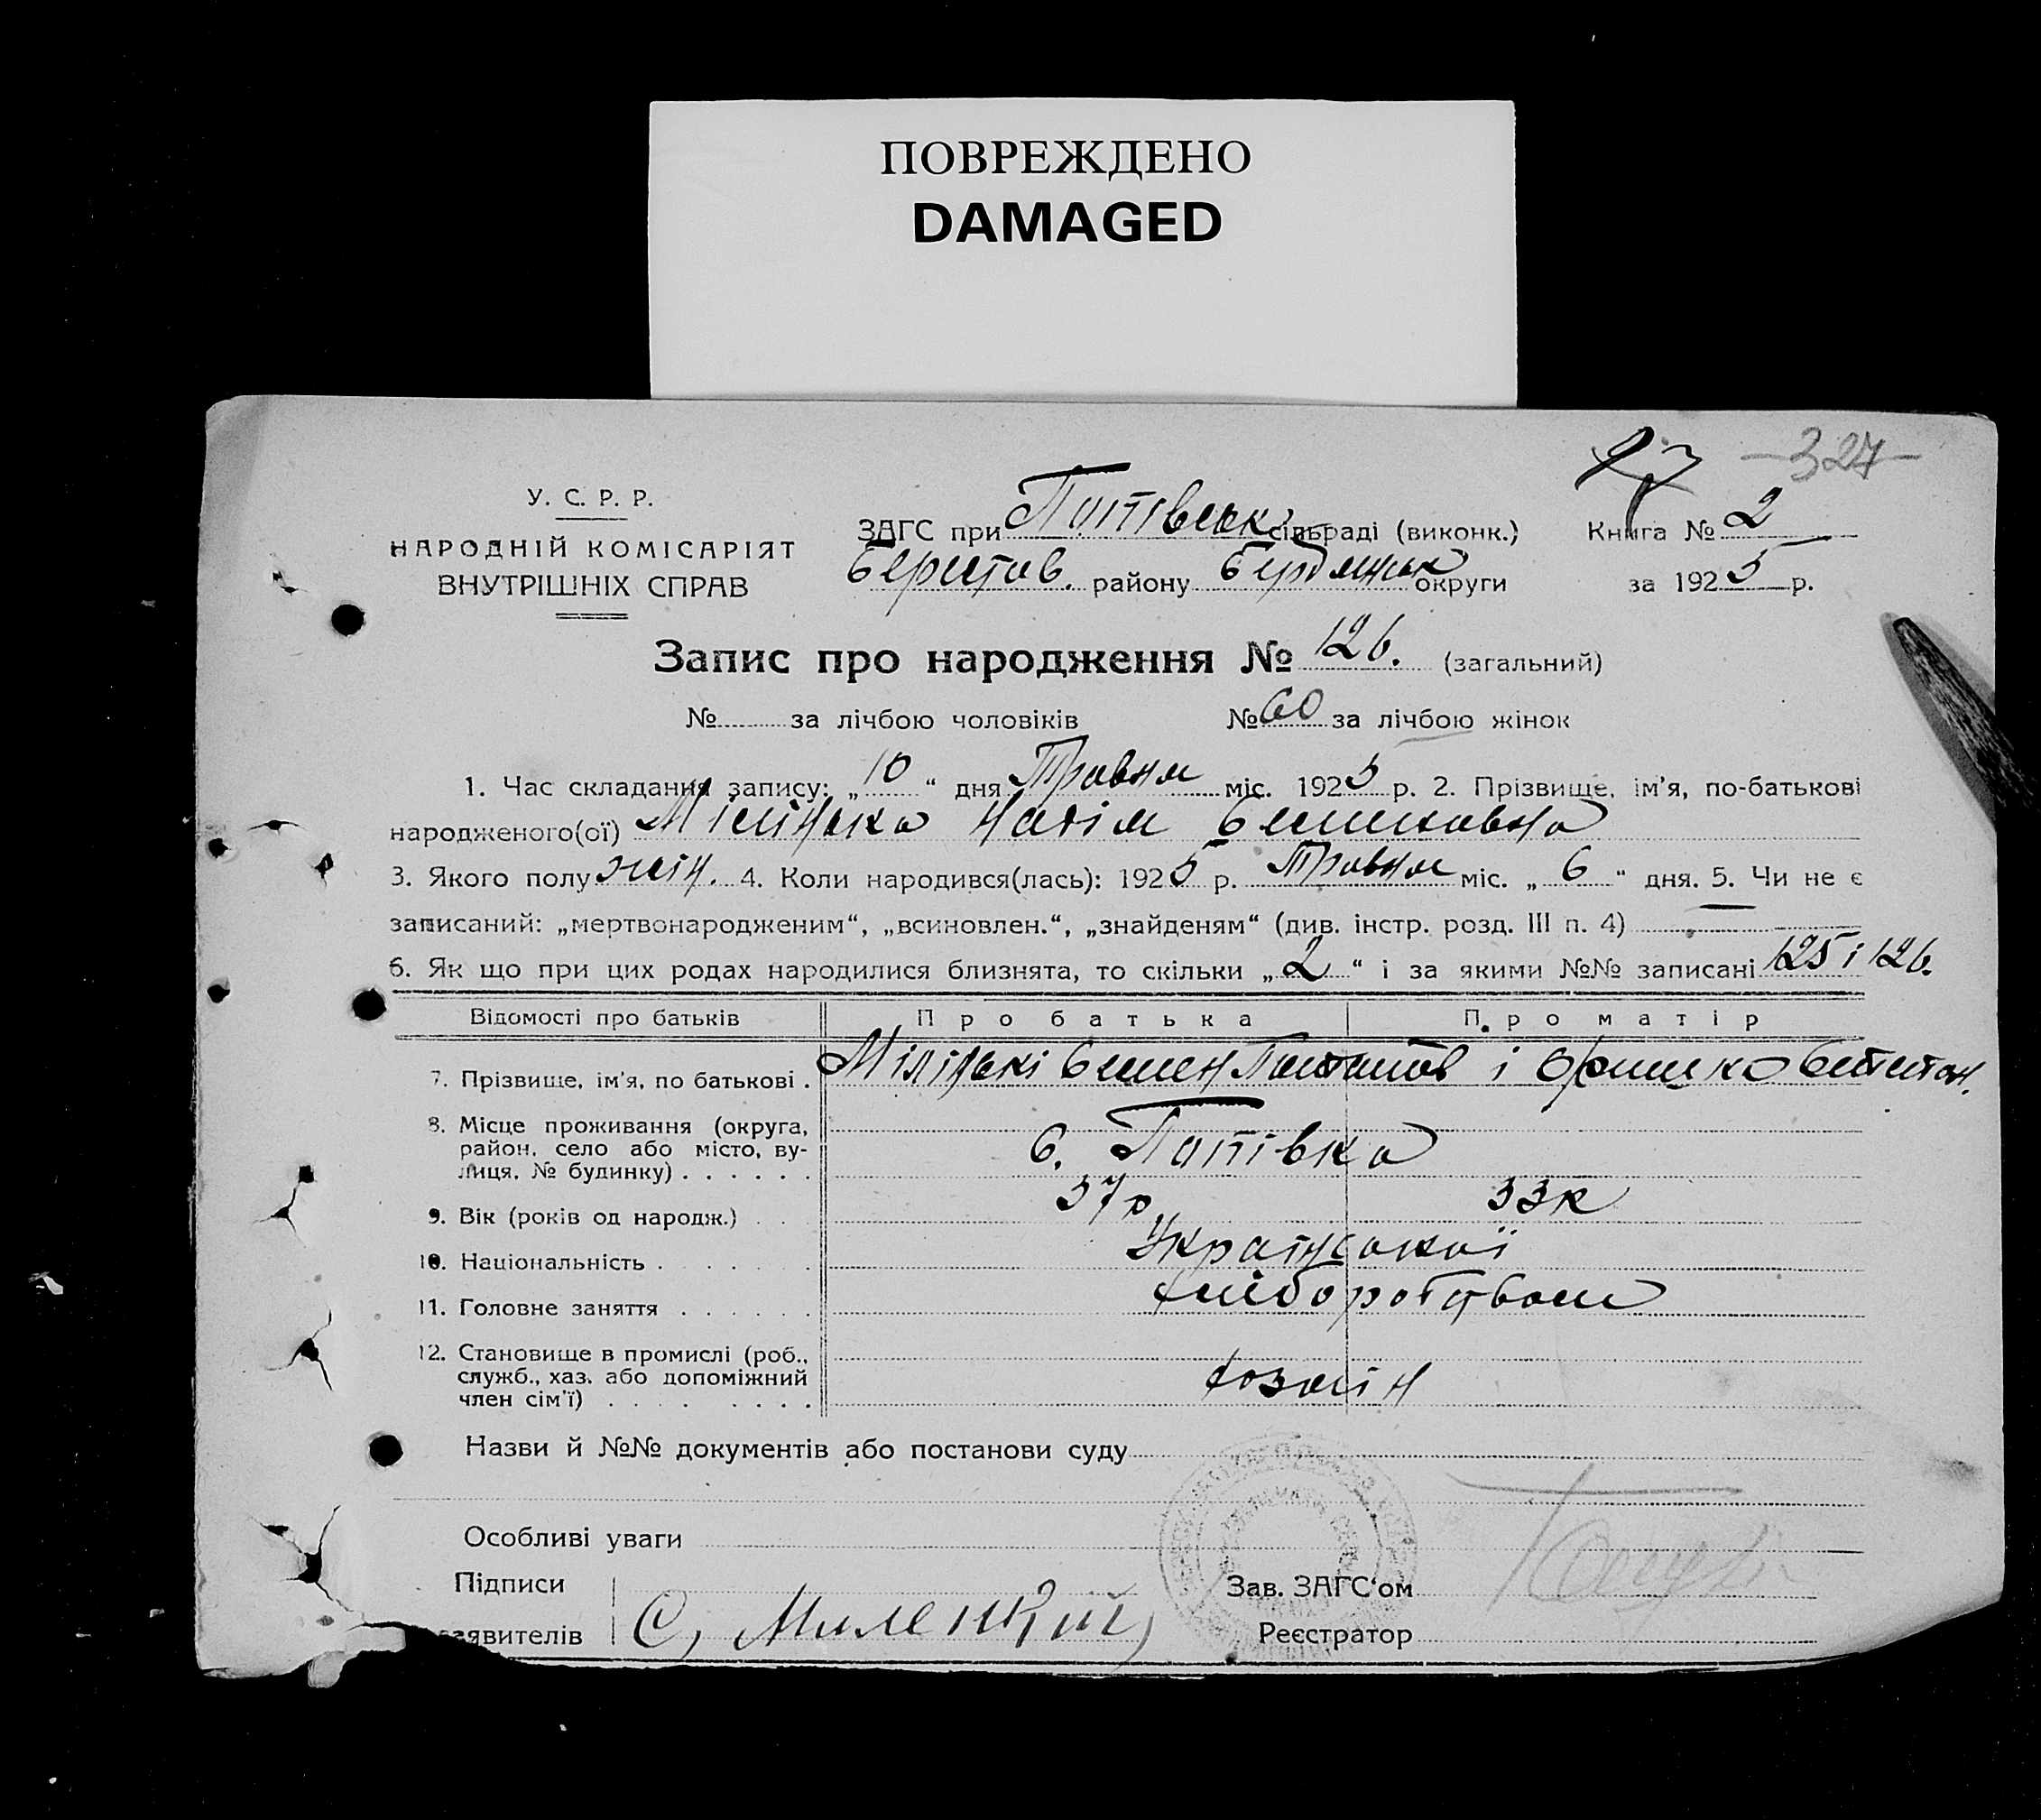 ПОВРЕЖДЕНО
DAMAGED
327
У. С. Р. Р.
НАРОДНІЙ КОМІСАРІЯТ
ВНУТРІШНІХ СПРАВ
ЗАГС при Попівськ сільраді (виконк.) Книга № 2
Берестов. району Бердянськ округи за 1925 р.
Запис про народження № 126. (загальний)
№ за лічбою чоловіків № 60 за лічбою жінок
1. Час складання запису: „10“ дня Травня міс. 1925 р. 2. Прізвище, ім'я, по-батькові
народженого(ої) Надія Семеновна
3. Якого полу жін. 4. Коли народився(лась): 1925 р. Травня міс. „6“ дня. 5. Чи не є
записаний: „мертвонародженим“, „всиновлен.“, „знайденям“ (див. інстр. розд. III п. 4) —
6. Як що при цих родах народилися близнята, то скільки „2“ і за якими №№ записані 125 і 126.
Відомості про батьків Про батька Про матір
7. Прізвище, ім'я, по батькові . Семен і
8. Місце проживання (округа,
район, село або місто, ву-
лиця, № будинку) . . . . . . С. Попівка
9. Вік (років од народж.) . . . 37р. 33р
10. Національність . . . . . . Української
11. Головне заняття . . . . . хлібороб
12. Становище в промислі (роб.,
служб., хаз. або допоміжний
член сім'ї) . . . . . . . . хозяїн
Назви й №№ документів або постанови суду
Особливі уваги
Підписи
заявителів С. Миленкий
Зав. ЗАГС'ом
Реєстратор